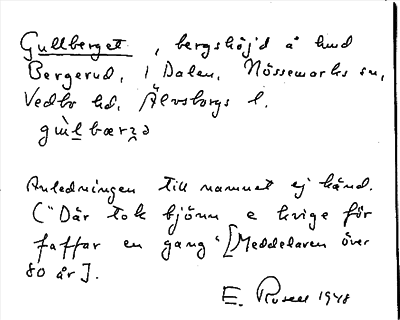 Gullberget, bergshöjd å hmd
Bergerud, i Dalen, Nössemarks sn,
Vedbo hd, Älvsborgs l.
Anledningen till namnet ej känd.
("Där tok bjönn e kvige för
faffar en gang" [Meddelaren över
80 år].
E. Rosell 1948